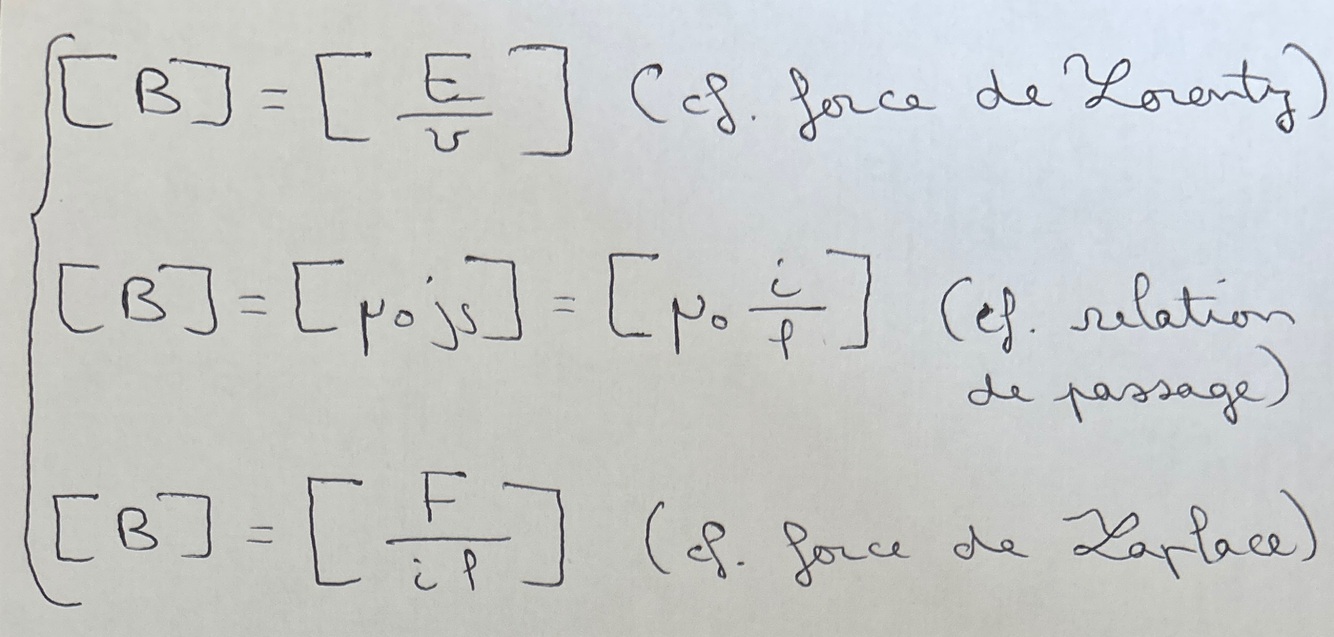 [B] = [E/v] (cf. force de Lorentz)
[B] = [μ₀ js] = [μ₀ i/l] (cf. relation
de passage)
[B] = [F/il] (cf. force de Laplace)